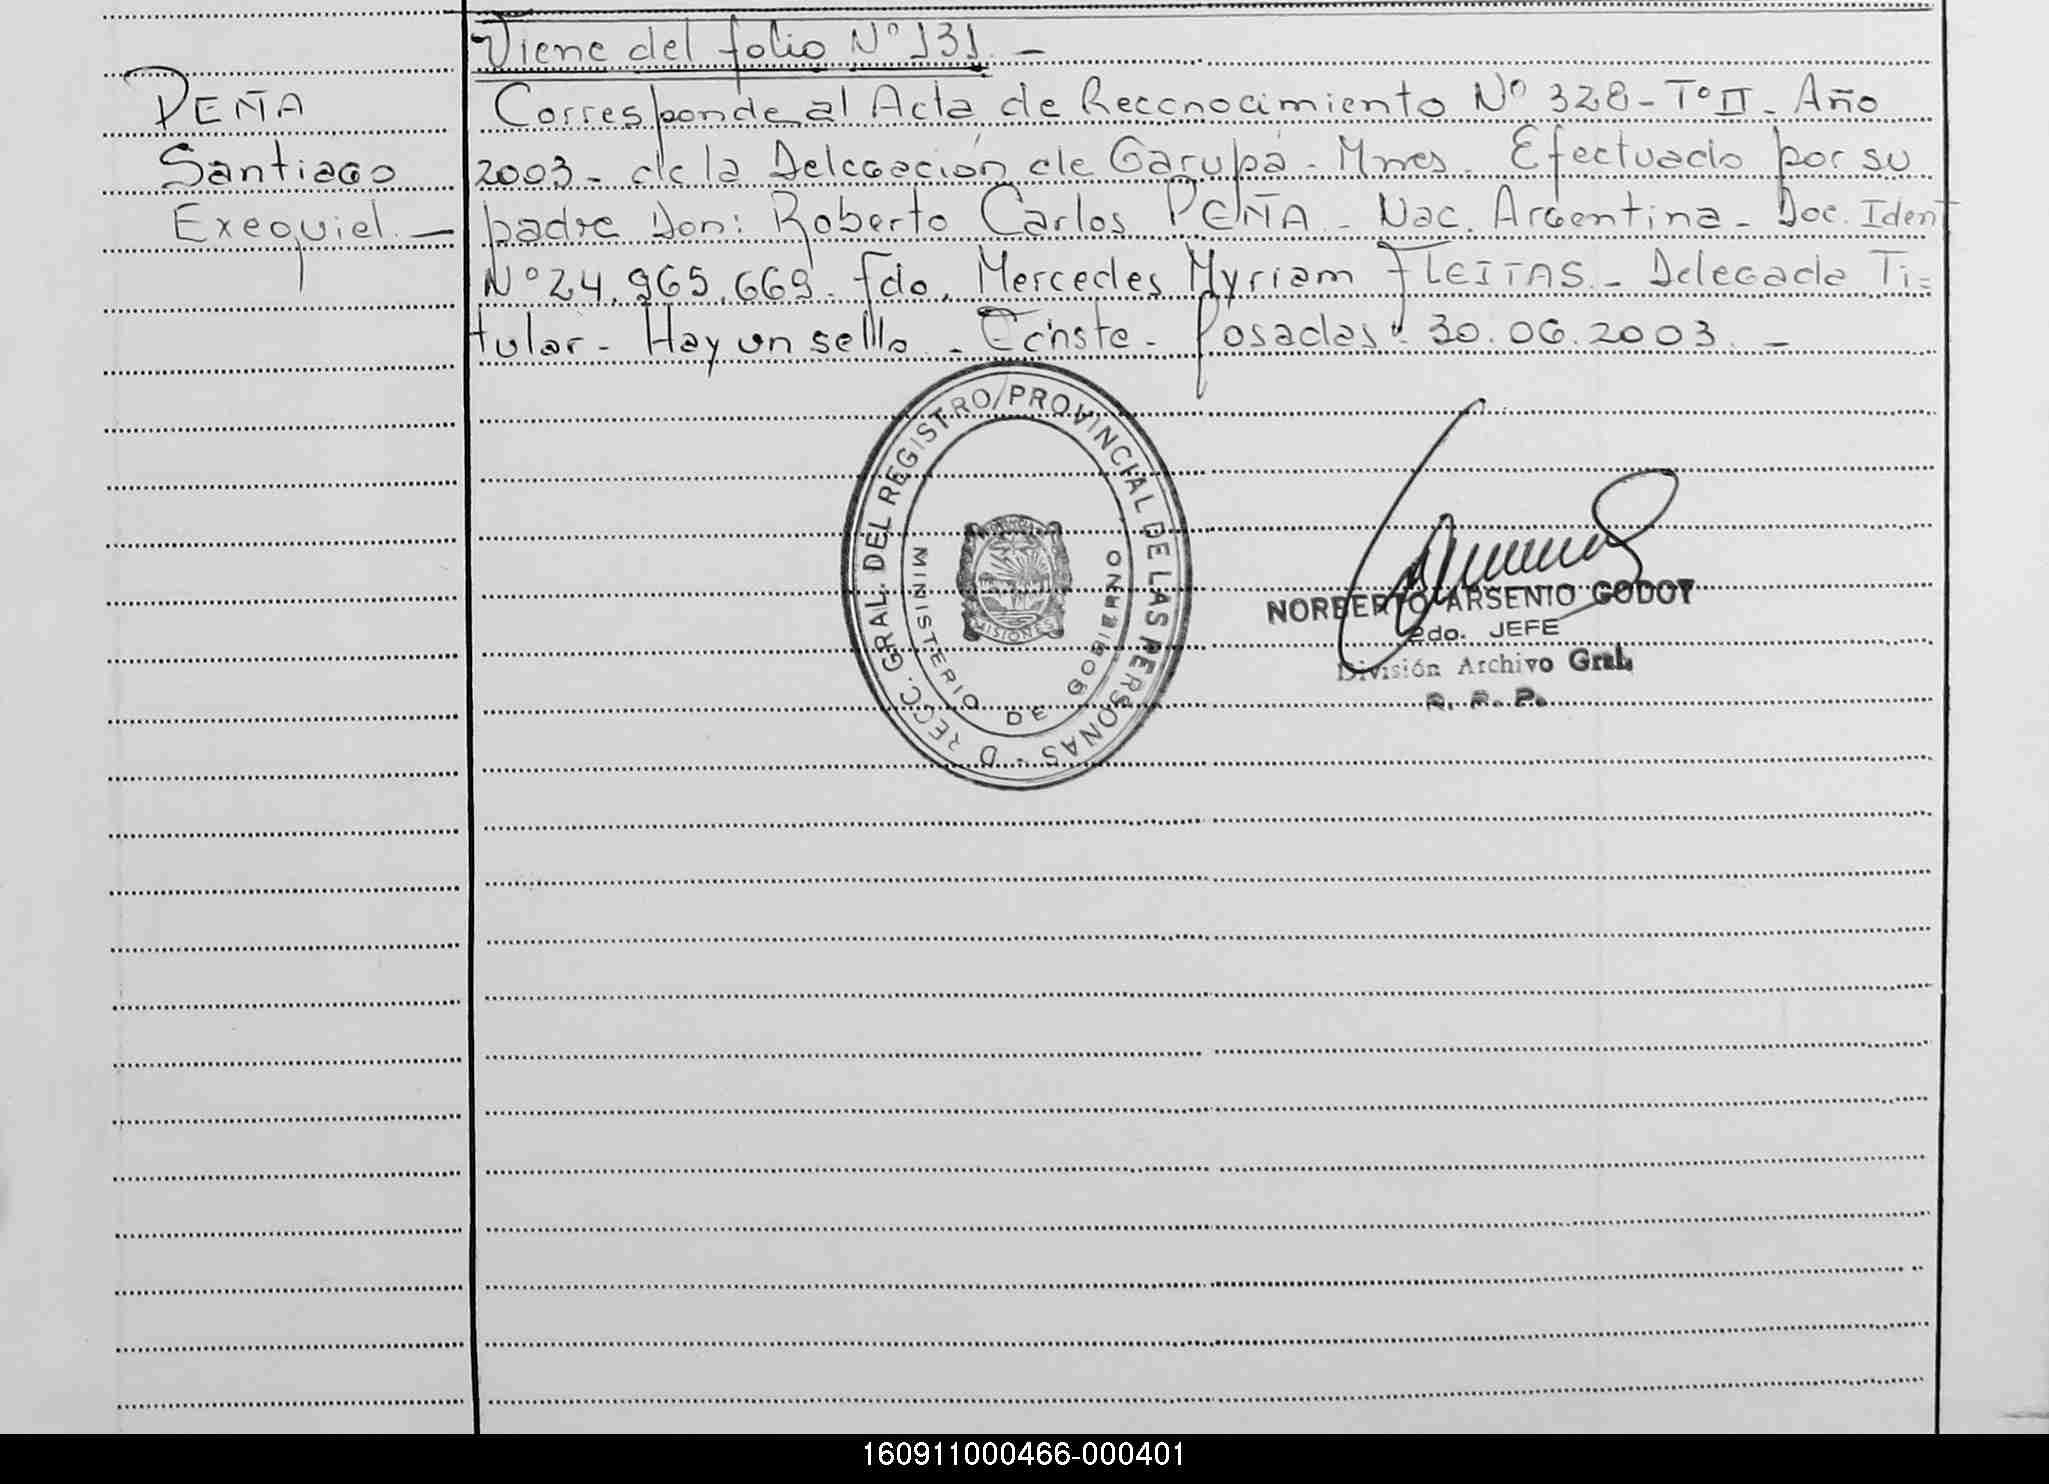 Viene del folio Nº 131. -
PEÑA
Corresponde al Acta de Reconocimiento Nº 328 - Tº II - Año
Santiago
2003 - de la Delegación de Garupá - Mnes. Efectuado por su
Exequiel. -
padre Don: Roberto Carlos PEÑA - Nac. Argentina - Doc. Ident
Nº 24.965.669. Fdo. Mercedes Myriam FLEITAS. - Delegada Ti=
tular - Hay un sello - Conste - Posadas: 30.06.2003. -
D RECC. GRAL. DEL REGISTRO PROVINCIAL DE LAS PERSONAS -
MINISTERIO DE GOBIERNO
MISIONES
NORBERTO ARSENIO GODOY
2do. JEFE
División Archivo Gral.
R. P. P.
160911000466-000401